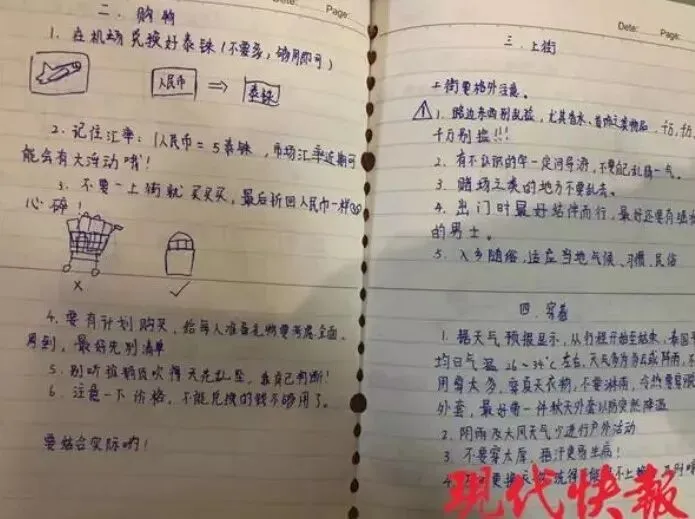 Page:
二、购物
1. 在机场兑换好泰铢（不要多，够用即可）
人民币 ⇒ 泰铢
2. 记住汇率：1人民币=5泰铢，市场汇率近期可
能会有大波动哦！
3. 不要一上街就买买买，最后折回人民币一样
心碎！
× ✓
4. 要有计划购买，给每人准备礼物要考虑全面、
周到，最好先列清单
5. 别听推销员吹得天花乱坠，靠自己判断！
6. 注意一下价格，不能兑换的钱不够用了。
要结合实际哟！
Date: Page:
三、上街
上街要格外注意。
1. 路边东西别乱捡，尤其香水、首饰之类物品，千万，千万
千万别捡!!!
2. 有不认识的字一定问导游，不要自己乱猜一气。
3. 赌场之类的地方不要乱去。
4. 出门时最好结伴而行，最好还要有强壮
的男士。
5. 入乡随俗，适应当地气候、习惯、民俗
四、穿着
1. 据天气预报显示，从行程开始至结束，泰国平
均日气温26~34℃左右，天气多为多云或阵雨，不
用穿太多，穿夏天衣物，不要淋雨，
外套，最好带一件秋天外套以防突然降温
2. 阴雨及大风天气少进行户外活动
3. 不要穿太厚，捂汗更易生病！
4.
现代快报